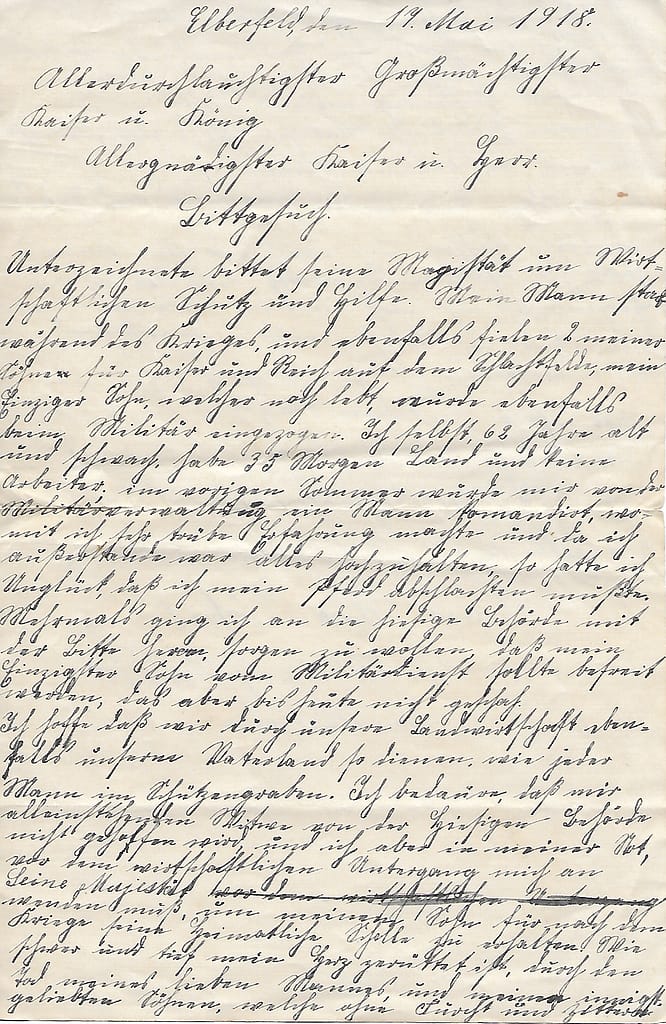 Elberfeld, den 19. Mai 1918.
Allerdurchlauchtigster Großmächtigster
Kaiser u. König
Allergnädigster Kaiser u. Herr.
Bittgesuch.
Unterzeichnete bittet seine Magistät um Wirt-
schaftlichen Schutz und Hilfe. Mein Mann starb
während des Krieges, und ebenfalls fielen 2 meiner
Söhne für Kaiser und Reich auf dem Schlachtfelde, mein
Einziger Sohn, welcher noch lebt, wurde ebenfalls
beim Militär eingezogen. Ich selbst, 62 Jahre alt
und schwach, habe 35 Morgen Land und keine
Arbeiter, im vorigen Sommer wurde mir von der
Militärverwaltung ein Mann komandirt, wo-
mit ich sehr trübe Erfahrung machte und da ich
außerstande war alles hochzuhalten, so hatte ich
Unglück, daß ich mein Pferd abschlachten mußte.
Mehrmals ging ich an die hiesige Behörde mit
der Bitte heran, sorgen zu wollen, daß mein
Einzigster Sohn vom Militärdienst sollte befreit
werden, das aber bis heute nicht geschah.
Ich hoffe daß wir durch unsere Landwirtschaft eben-
falls unserm Vaterland so dienen, wie jeder
Mann im Schützengraben. Ich bedaure, daß mir
alleinstehenden Witwe von der Hiesigen Behörde
nicht geholfen wird, und ich aber in meiner Not,
vor dem wirtschaftlichen Untergang mich an
Seine Majestät vor dem wirtschaftlichen Untergang
wenden muß, zum meinen Sohn für nach dem
Kriege seine Heimatliche Scholle zu erhalten. Wie
schwer und tief mein Herz zerrüttet ist, durch den
Tod meines lieben Mannes, und meinen innigst
geliebten Söhnen, welche ohne Furcht und zittern